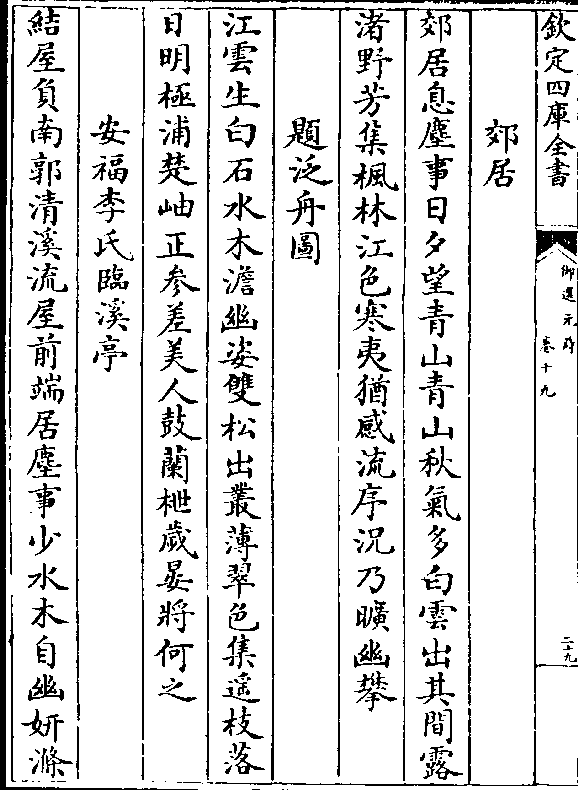 欽定四庫全書
御選元詩 卷十九
二十九
郊居
郊居息塵事日夕望青山青山秋氣多白雲出其間露
渚野芳集楓林江色寒夷猶感流序況乃曠幽攀
題泛舟圖
江雲生白石水木澹幽姿雙松出叢薄翠色集遥枝落
日明極浦楚岫正參差美人鼓蘭枻歲晏將何之
安福李氏臨溪亭
結屋負南郭清溪流屋前端居塵事少水木自幽妍滌